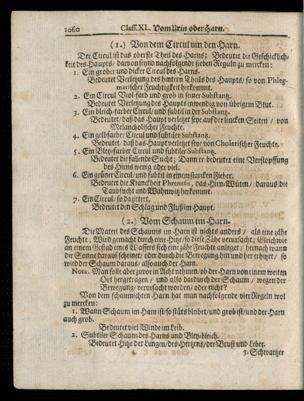 1060 Class. XI. Vom Urin oder Harn.
(1.) Von dem Circul um den Harn.
Der Circul ist das oberste Theil des Harns; Bedeutet die Geschicklich-
keit des Haupts / davon seynd nachfolgende sieben Reguln zu mercken:
1. Ein grober und dicker Circul des Harns.
Bedeutet Verletzung des hintern Theils des Haupts / so von Phleg-
matischer Feuchtigkeit herkommt.
2. Ein Circul Viol-farb und grob in seiner Substantz.
Bedeutet Verletzung des Haupts inwendig von übrigem Blut.
3. Ein bleich-farber Circul / und subtil in der Substantz.
Bedeutet / daß das Haupt verletzet sey auf der lincken Seiten / von
Melancholischer Feuchte.
4. Ein gelbfarber Circul und subtiler Substantz.
Bedeutet / daß das Haupt verletzet sey von Cholerischer Feuchte.
5. Ein Bley-farber Circul subtiler Substantz.
Bedeutet die fallende Sucht; Dann er bedeutet eine Verstopffung
des Hirns wenig oder viel.
6. Ein grüner Circul / und subtil in einem starcken Fieber.
Bedeutet die Kranckheit Phrenesis, das Hirn-Wüten / daraus die
Taubsucht und Wahnwitz herkommt.
7. Ein Circul, so da zittert,
Bedeutet den Schlag und Fluß im Haupt.
(2.) Vom Schaum im Harn.
Die Materi des Schaums im Harn ist nichts anders / als eine zähe
Feuchte / Wird gemacht durch eine Hitz / so die Zähe verursachet; Gleichwie
an einem Gestad eines Wassers sich eine zähe Feuchte anleget / darnach wann
die Sonne darauf scheinet / oder durch die Bewegung hin und her rühret / so
wird der Schaum daraus / also auch der Harn.
Nota. Man solle aber zuvor in Acht nehmen / ob der Harn von einem weiten
Ort hergetragen / und also dardurch der Schaum / wegen der
Bewegung verursacht worden / oder nicht?
Von dem schaumichten Harn hat man nachfolgende vier Regeln wol
zu mercken:
1. Wann Schaum im Harn ist / so stäts bleibet / und grob ist / und der Harn
auch grob.
Bedeutet viel Winde im Leib.
2. Subtiler Schaum des Harns und Bley-bleich.
Bedeutet Hitze der Lungen / des Hertzens / der Brust und Leber.
3. Schwartzer